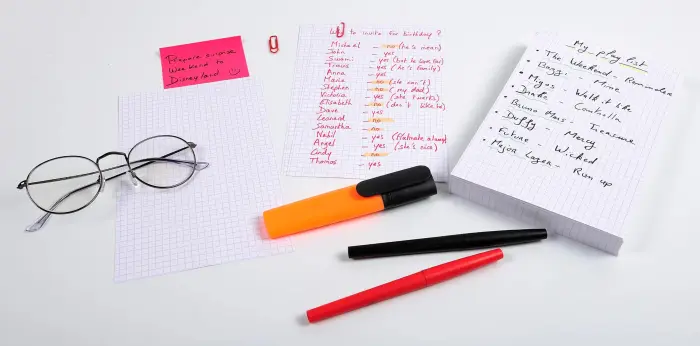 Prepare surprise
Weekend to
Disneyland
to invite for birthday ?
Michael - no (he's mean)
John - yes
Swami - yes (but he
Travis - yes (he's family)
Anna - yes
Maria - no (she can't)
Stephen - no (my dad)
Victoria - yes (she
Elisabeth - no (don't like
Dave - yes
Leonard - no
Samantha - no
Nabil - yes (
Angel - yes (she's nice)
Cindy - no
Thomas - yes
My playlist
• The Weekend -
• Bazzi - Mine
• Miyas - Walk it like
• Drake - Controlla
• Bruno Mars - Treasure
• Duffy - Mercy
• Future - Wicked
• Major Lazer - Run up